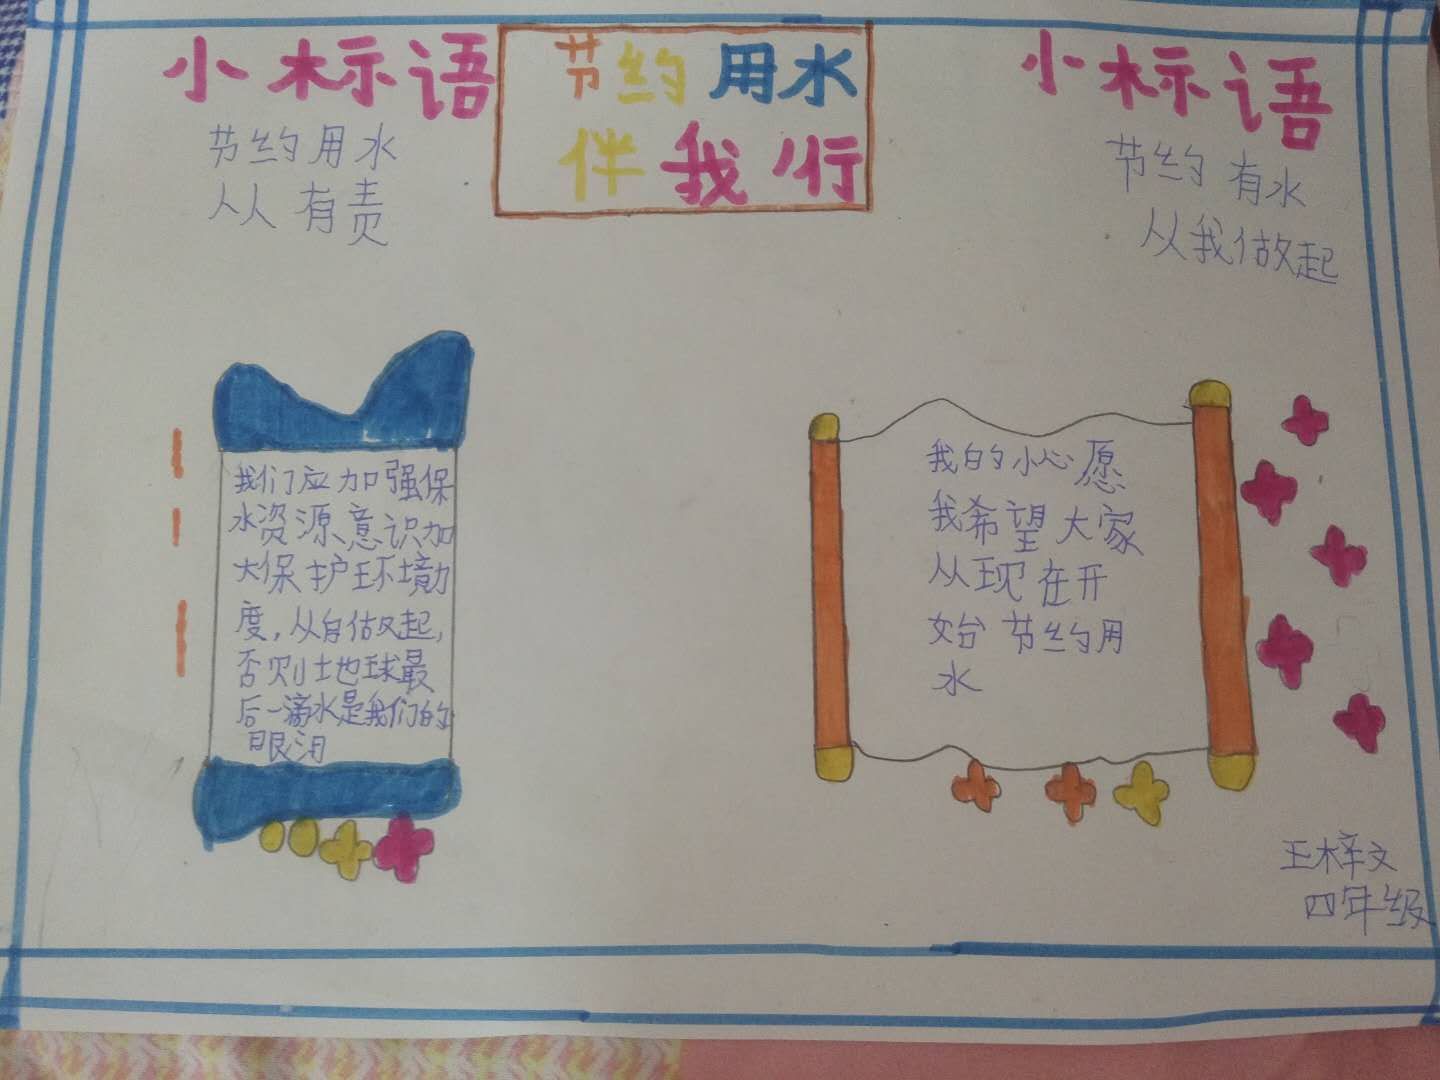 小标语
节约用水
人人有责
节约用水
伴我行
小标语
节约有水
从我做起
我们应加强保
水资源意识加
大保护环境力
度,从自做起,
否则地球最
后一滴水是我们的
眼泪
我的小心愿
我希望大家
从现在开
始节约用
水
王梓文
四年级